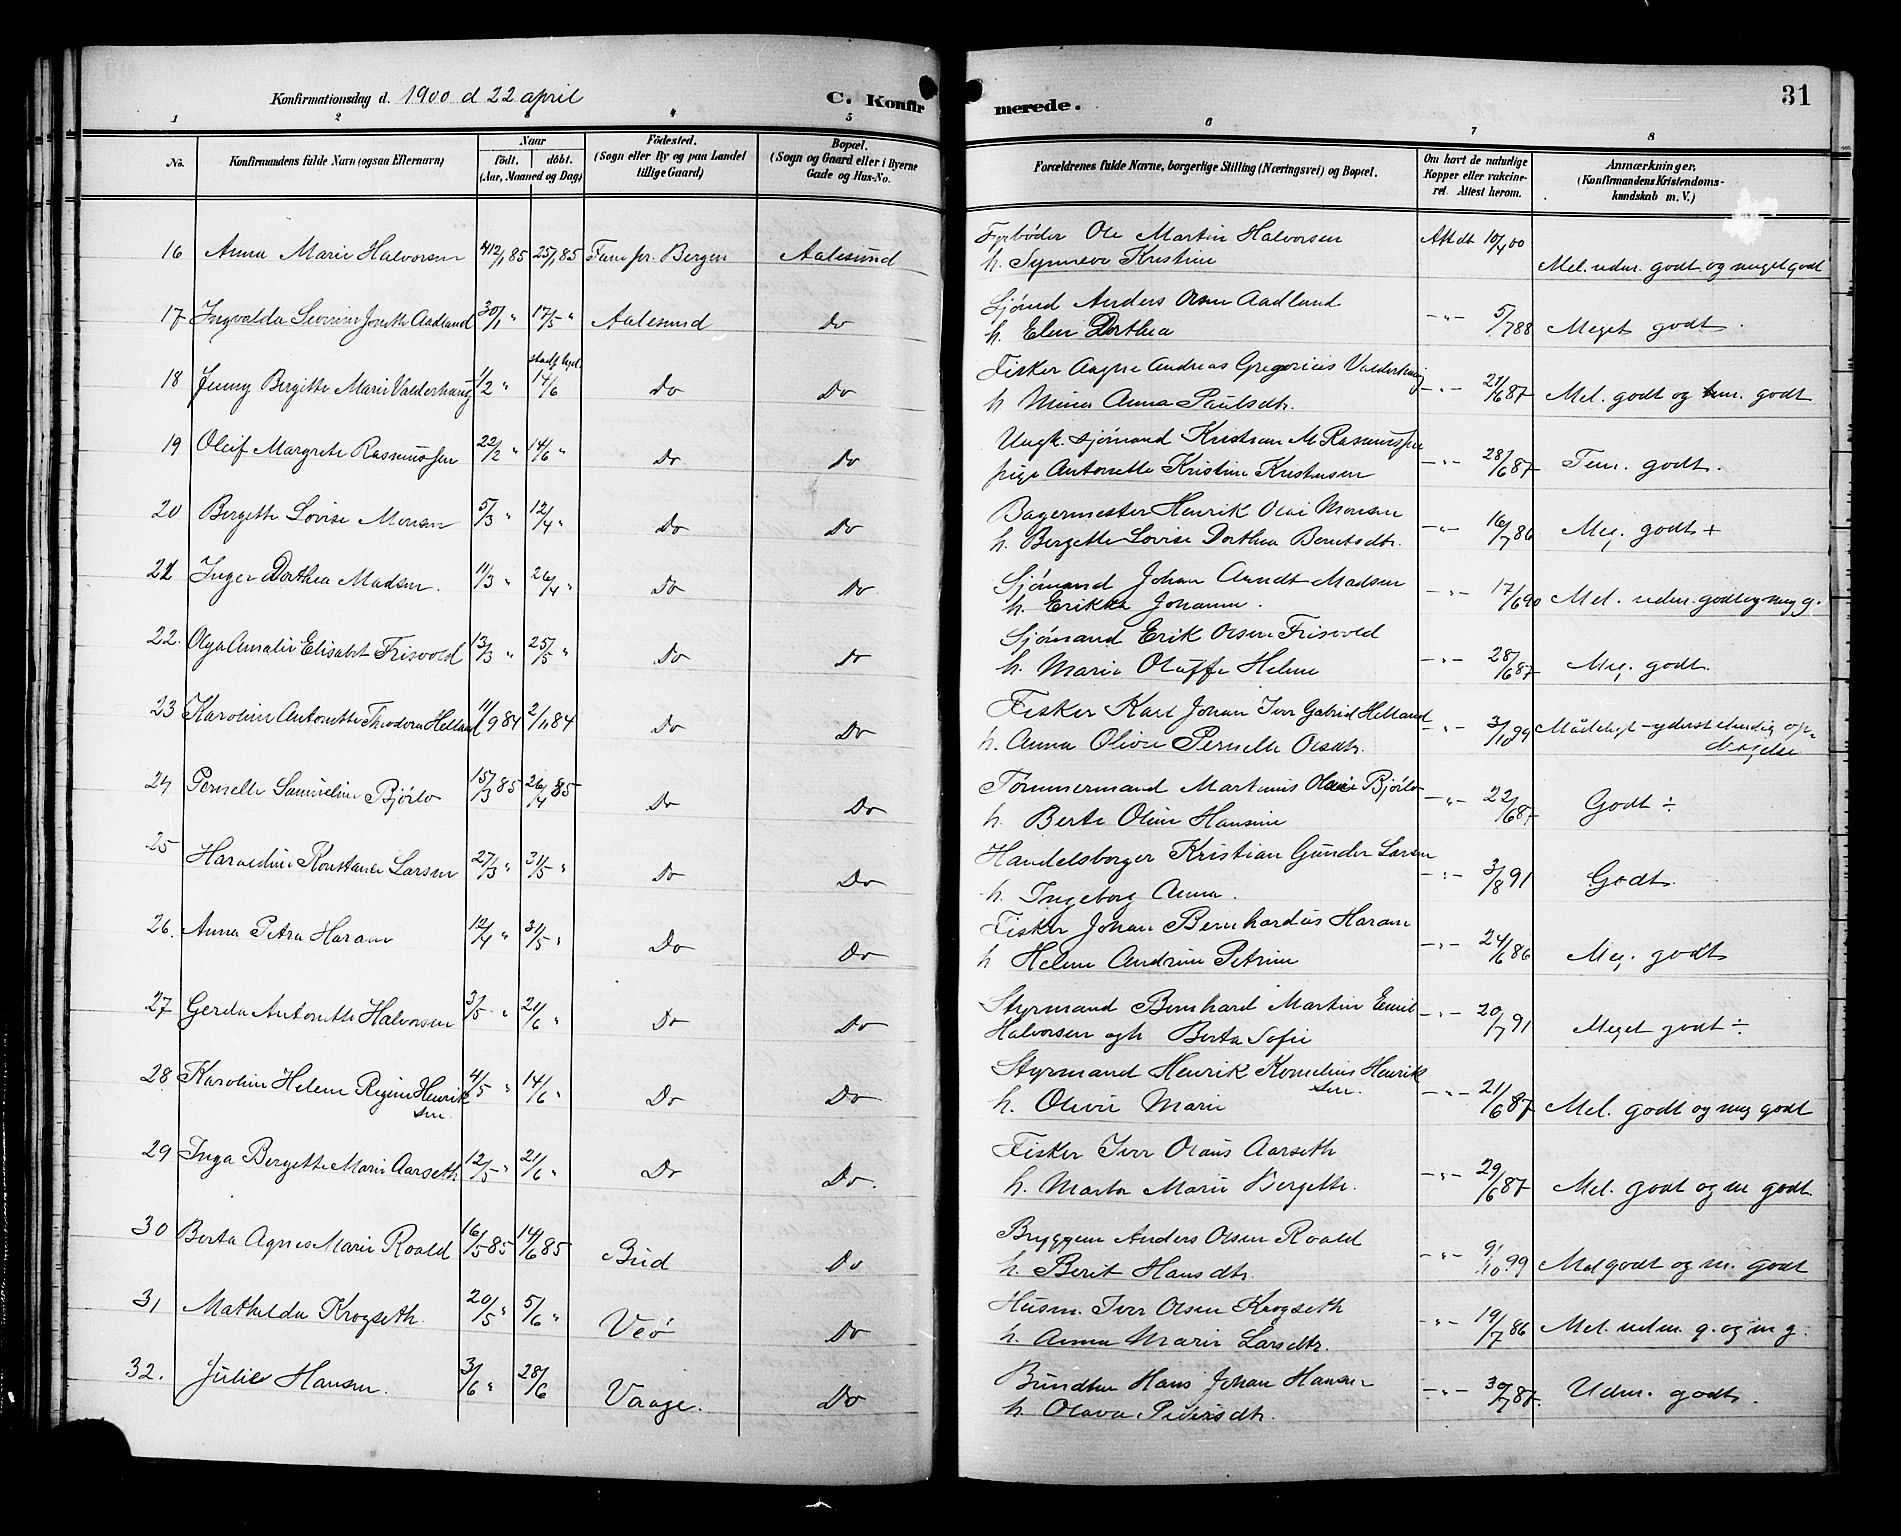 31
Konfirmationsdag d. 1900 d 22 april
C. Konfirmerede.
1 2 3 4 5 6 7 8
No.
Konfirmandens fulde Navn (ogsaa Efternavn)
Naar
født. døbt.
(Aar, Maaned og Dag)
Födested.
(Sogn eller By og paa Landet
tillige Gaard)
Bopæl.
(Sogn og Gaard eller i Byerne
Gade og Hus-No.
Forældrenes fulde Navne, borgerlige Stilling (Næringsvei) og Bopæl.
Om havt de naturlige
Kopper eller vakcine-
ret. Attest herom.
Anmærkninger,
(Konfirmandens Kristendoms-
kundskab m. V.)
16 Anna Marie Halvorsen 12/1 85 25/1 85 Fane pr. Bergen Aalesund
Fyrbøder Ole Martin Halvorsen
h. Synneve Kristine
Att dt 10/4 00 Mel. udm. godt og meget godt
17 Ingvalda Severine Jonetta Aadland 30/1 " 17/5 " Aalesund Do
Sjømd Anders Olsen Aadland
h. Elen Dorthea
-"- 5/7 88 Meget godt.
18 Jenny Bergitte Marie Valderhaug 1/2 " 14/6 Do Do
Fisker Aagne Andreas Gregorius Valderhaug
h Mina Anna Paulsdtr.
-"- 21/6 87 Mel. godt og tem. godt
19 Oleif Margrete Rasmussen 22/2 " 14/6 " Do Do
Ungk. sjømand Kristian M Rasmussen
pige Antonette Kristine Kristensen
-"- 28/6 87 Tem. godt.
20 Bergette Lovise Monsen 5/3 " 12/4 " Do Do
Bagermester Henrik Olai Monsen
h. Bergette Lovise Dorthea Berntsdtr.
-"- 16/7 86 Meg. godt +
21 Inger Dorthea Madsen. 11/3 " 26/4 " Do Do
Sjømand Johan Arndt Madsen
h. Erikka Johanne.
-"- 17/6 90 Mel. udm. godt og meg g.
22. Olga Amalie Elisabet Frisvold 13/3 " 25/5 " Do Do
Sjømand Erik Olsen Frisvold
h. Marie Oluffe Helene
-"- 28/6 87 Meg. godt.
23 Karoline Antonette Theodora Helland 11/9 84 2/11 84 Do Do
Fisker Karl Johan Iver Gabriel Helland
h. Anna Oline Pernelle Olsdtr.
-"- 3/10 99 Mådeligt - yderst elendig op-
dragelse
24 Pernelle Samueline Bjørlo 15/3 85 26/4 85 Do Do
Tømmermand Martinus Olai Bjørlo
h. Berte Oline Hansine
-"- 22/6 87 Godt ÷
25 Haraldine Konstance Larsen 27/3 " 31/5 " Do Do
Handelsborger Kristian Gunder Larsen
h. Ingeborg Anna.
-"- 3/8 91 Godt
26. Anna Petra Haram 12/4 " 31/5 " Do Do
Fisker Johan Bernhardus Haram
h Helene Andrine Petrine
-"- 24/6 86 Meg. godt
27 Gerda Antonette Halvorsen 3/5 " 21/6 " Do Do
Styrmand Bernhard Martin Emil
Halvorsen og h Berta Sofie
-"- 20/7 91 Meget godt ÷
28 Karoline Helene Regine Henrik
sen. 4/5 " 14/6 " Do Do
Styrmand Henrik Kornelius Henrik
sen.
h. Olivie Marie
-"- 21/6 87 Mel. godt og meg godt
29 Inga Bergette Marie Aarseth 12/5 " 21/6 " Do Do.
Fisker Iver Olaus Aarseth
h. Marta Marie Bergette.
-"- 29/6 87 Mel. godt og m godt.
30 Berta Agnes Marie Roald 16/5 85 14/6 85 Bud Do
Bryggem Anders Olsen Roald
h. Berit Hansdtr.
-"- 9/10 99 Mel godt og m. godt
31 Mathilda Krogseth. 20/5 " 5/6 " Veø Do
Husm. Iver Olsen Krogseth
h. Anna Marie Larsdtr.
-"- 19/7 86 Mel. udm. g. og m g.
32. Julie Hansen. 3/6 " 28/6 Vaage. Do
Bundtm Hans Johan Hansen
h. Olava Pedersdtr.
-"- 30/7 87. Udm. godt.